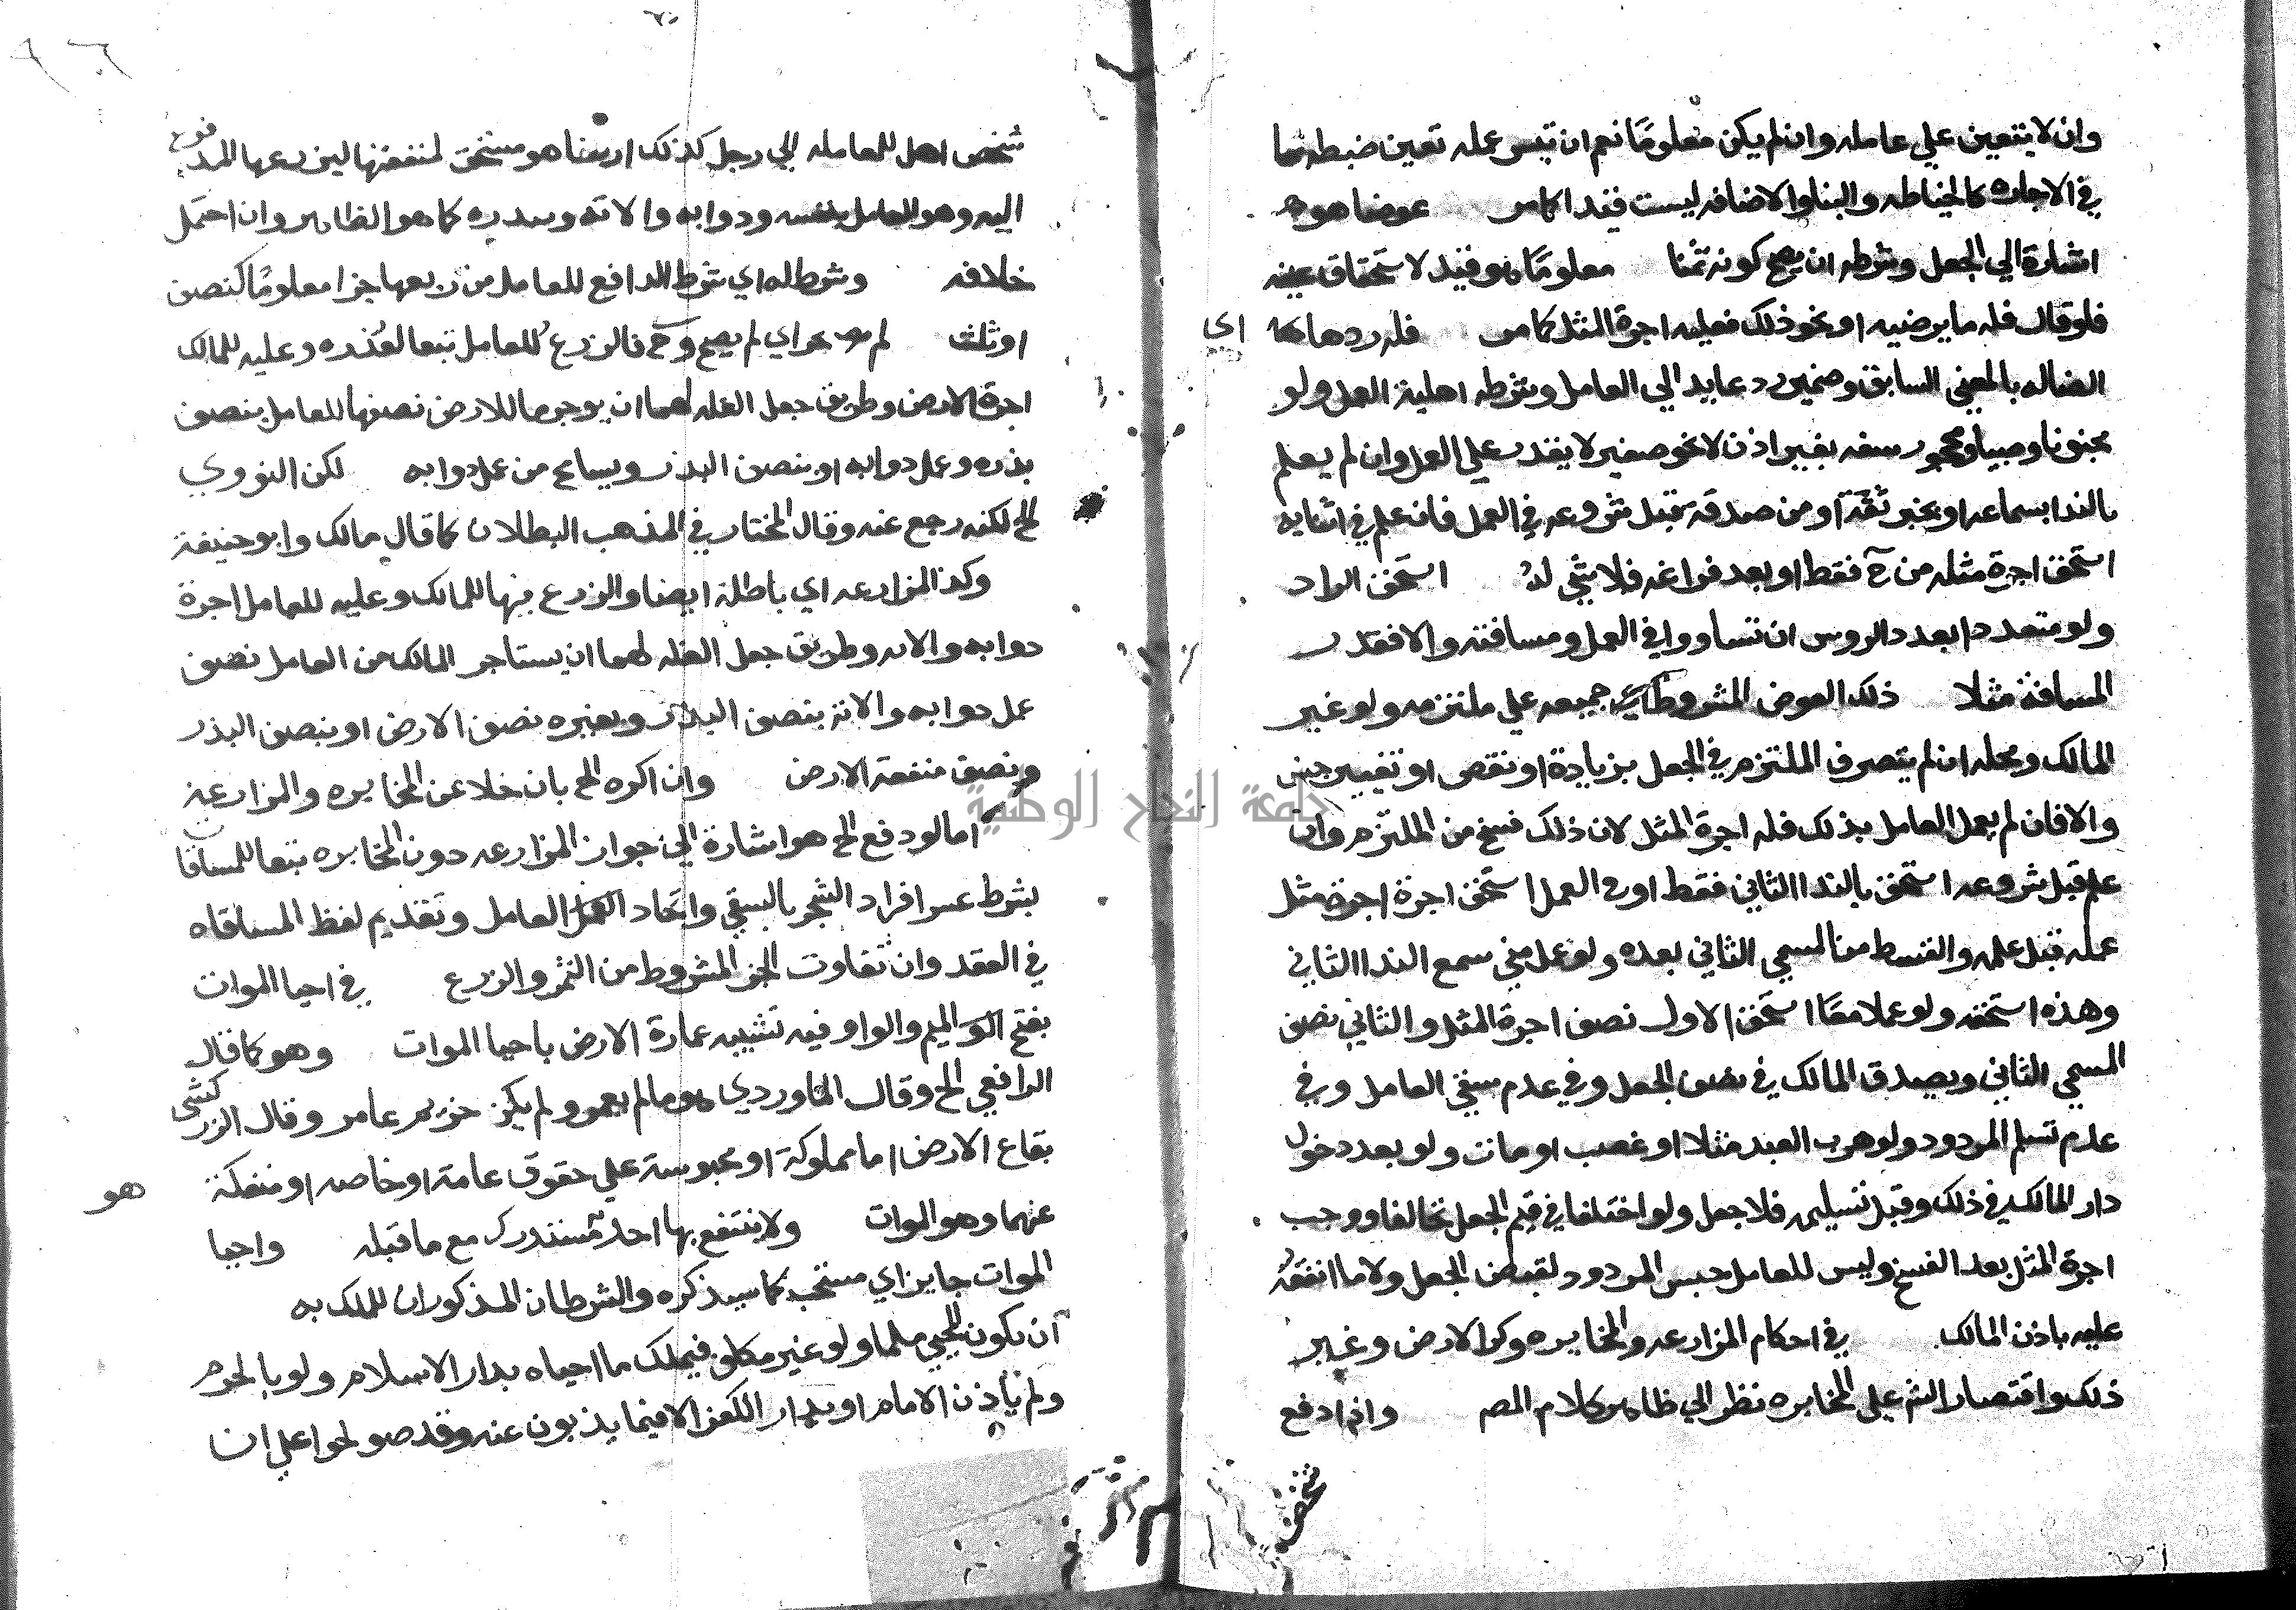 وان لا يتعين علي عامله وان لم يكن معلوما نعم ان تيسر عمله تعين ضبطه كما
في الاجاره كالخياطه والبنا والاضافه ليست قيدا كما مر عوضا هو
اشارة الي الجعل وشرطه ان يصح كونه ثمنا معلوما هو قيد لاستحقاق عينه
فلو قال فله ما يرضيه او نحو ذلك فعليه اجرة المثل كما مر فله ردها اي
الضاله بالمعني السابق وضمير رد عايد الي العامل وشرطه اهلية العمل ولو
مجنونا وصبيا ومحجور سفه بغير اذن لا نحو صغير لا يقدر علي العمل وان لم يعلم
بالندا بسماعه او بخبر ثقة او من صدقه قبل شروعه في العمل فان علم في اثنايه
استحق اجرة مثله من ح فقط او بعد فراغه فلا شي له استحق الراد
ولو متعددا بعدد الروس ان تساووا في العمل ومسافته والا فقدر
المسافة مثلا ذلك العوض المشروط اي جميعه علي ملتزمه ولو غير
المالك ومحله ان لم يتصرف الملتزم في الجعل بزيادة او نقص او تغيير جنس
والا فان لم يعمل العامل بذلك فله اجرة المثل لان ذلك فسخ من الملتزم وان
علم قبل شروعه استحق بالندا الثاني فقط او في العمل استحق اجرة اجرة مثل
عمله قبل علمه والقسط من المسمي الثاني بعده ولو عمل من سمع الندا الثاني
وهذه استحقه ولو عملا معا استحق الاول نصف اجرة المثل والثاني نصف
المسمي الثاني ويصدق المالك في نفي الجعل وفي عدم سعي العامل وفي
عدم تسلم المردود ولو هرب العبد مثلا او غصب او مات ولو بعد دخول
دار المالك في ذلك وقبل تسليمه فلا جعل ولو اختلفا في قدر الجعل تحالفا ووجب
اجرة المثل بعد الفسخ وليس للعامل حبس المردود لقبض الجعل ولا ما انفقه
عليه باذن المالك في احكام المزارعه والمخابره وكرا الارض وغير
ذلك واقتصار الش علي المخابره نظر الي ظاهر كلام المص واذا دفع
شخص
شخص اهل للمعامله الي رجل كذلك ارضا هو مستحق لمنفعتها ليزرعها المدفوع
اليه وهو العامل بنفسه ودوابه والاته وببذره كما هو الظاهر وان احتمل
خلافه وشرط له اي شرط الدافع للعامل من ريعها جزا معلوما كنصف
او ثلث لم يجز اي لم يصح وح فالزرع للعامل تبعا لبذره وعليه للمالك
اجرة الارض وطريق جعل الغله لهما ان يوجر مالك الارض نصفها للعامل بنصف
بذره وعمل دوابه او بنصف البذر ويسامح من عمل دوابه لكن النووي
الخ لكنه رجع عنه وقال المختار في المذهب البطلان كما قال مالك وابو حنيفة
وكذا المزارعه اي باطلة ايضا والزرع فيها للمالك وعليه للعامل اجرة
دوابه والاته وطريق جعل الغله لهما ان يستاجر المالك من العامل نصف
عمل دوابه والاته بنصف البذر ويعيره نصف الارض او بنصف البذر
ونصف منفعة الارض وان اكره الخ بان خلا عن المخابره والمزارعة
اما لو دفع الخ هو اشارة الي جواز المزارعه دون المخابره تبعا للمساقا
بشرط عسر افراد الشجر بالسقي واتحاد العامل وتقديم لفظ المساقاه
في العقد وان تفاوت الجز المشروط من الثمر والزرع في احيا الموات
بفتح الميم والواو وفيه تشبيه عمارة الارض باحيا الموات وهو كما قال
الرافعي الخ وقال الماوردي هو ما لم يعمر ولم يكن حريم عامر وقال الزركشي
بقاع الارض اما مملوكة او محبوسة علي حقوق عامة او خاصه او منفكة
عنهما وهو الموات ولا ينتفع بها احد مستدرك مع ما قبله واحيا هو
الموات جايز اي مستحب كما سيذكره والشرطان المذكوران للملك به
ان يكون المحيي مسلما ولو غير مكلف فيملك ما احياه بدار الاسلام ولو بالحرم
ولم ياذن الامام او بدار الكفر الا فيما يذبون عنه وقد صولحوا علي ان
جامعة النجاح الوطنية